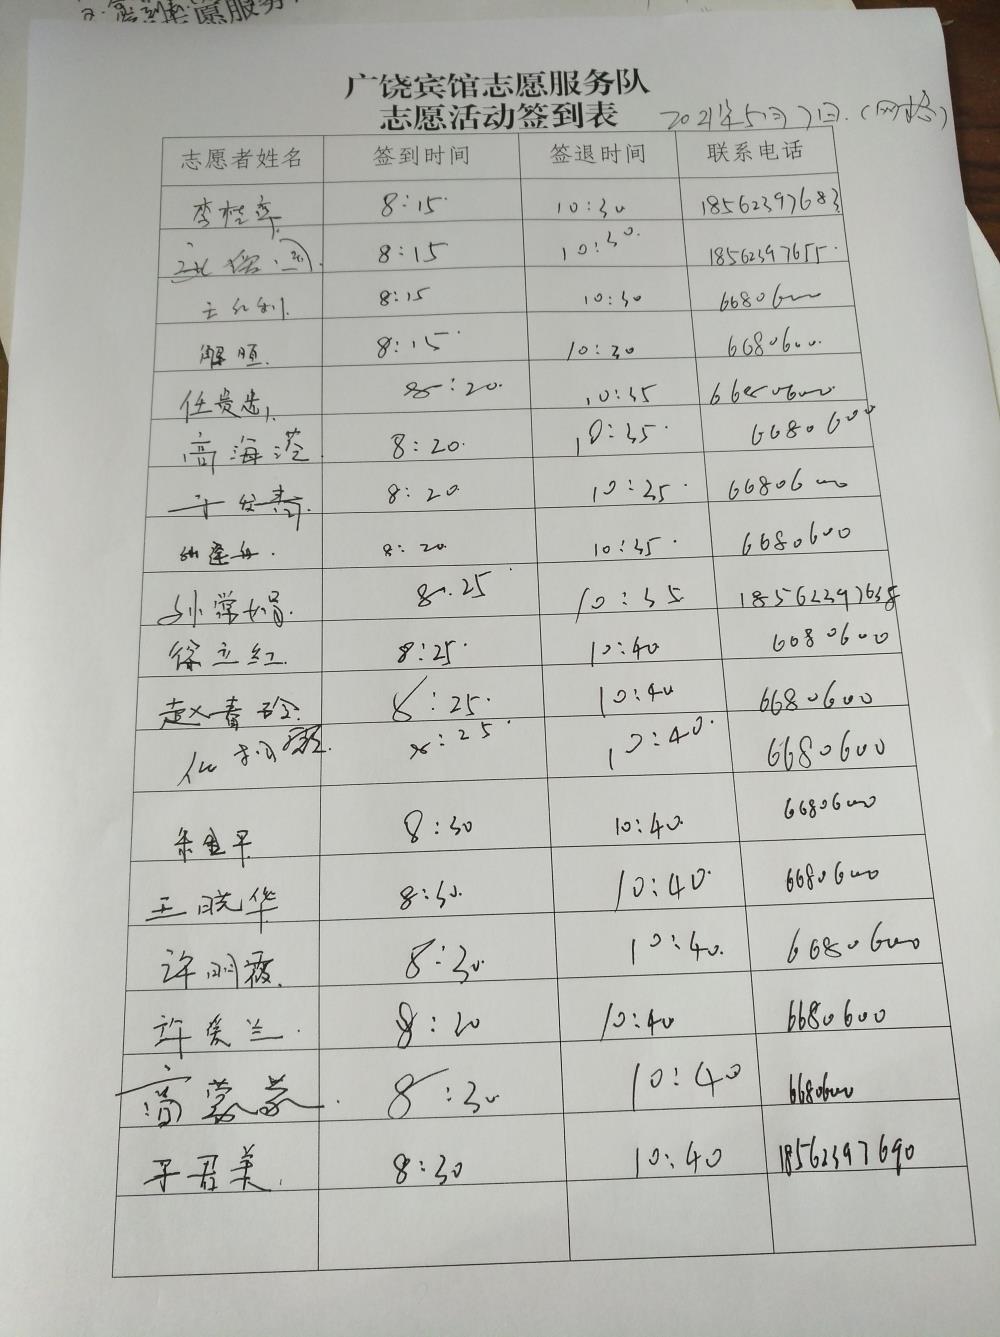 广饶宾馆志愿服务队
志愿活动签到表 2021年5月7日.(网格)
志愿者姓名 签到时间 签退时间 联系电话
李桂章 8:15 10:30 18562397683
8:15 10:30 18562397655
王红利 8:15 10:30 6680600
解恒 8:15 10:30 6680600
任贵忠 8:20 10:35 6680600
高海滢 8:20 10:35 6680600
于发寿 8:20 10:35 6680600
8:20 10:35 6680600
孙常娟 8:25 10:35 18562397638
徐立红 8:25 10:40 6680600
赵春玲 8:25 10:40 6680600
8:25 10:40 6680600
朱金平 8:30 10:40 6680600
王晓华 8:30 10:40 6680600
许明霞 8:30 10:40 6680600
许爱兰 8:20 10:40 6680600
高蒙蒙 8:30 10:40 6680600
于君美 8:30 10:40 18562397690